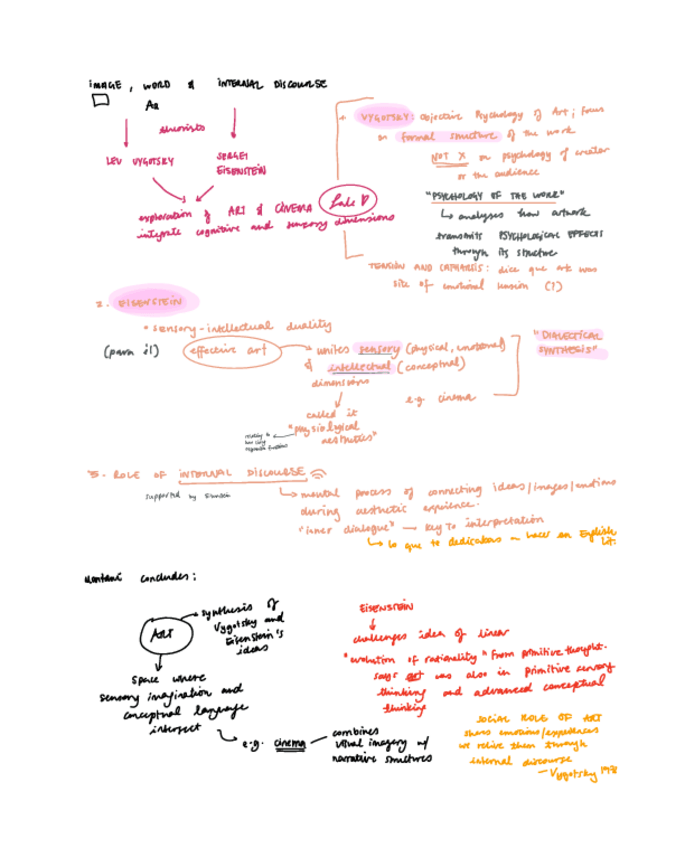 IMAGE, WORD & INTERNAL DISCOURSE
Aa
theorists
LEV VYGOTSKY
SERGEI EISENSTEIN
exploration of ART & CINEMA
integrate cognitive and sensory dimensions
VYGOTSKY: Objective Psychology of Art; focus
on formal structure of the work
NOT X on psychology of creator
or the audience
"PSYCHOLOGY OF THE WORK"
↳ analyses how artwork
transmits PSYCHOLOGICAL EFFECTS
through its structure
TENSION AND CATHARSIS: dice que art was
site of emotional tension (!)
2. EISENSTEIN
• sensory-intellectual duality
(para él)
effective art
unites sensory (physical, emotional)
& intellectual (conceptual)
dimensions
"DIALECTICAL
SYNTHESIS"
e.g. cinema
called it
"physiological
aesthetics"
relating to
how living
organisms functions
5. ROLE OF INTERNAL DISCOURSE
supported by
↳ mental process of connecting ideas/images/emotions
during aesthetic experience.
"inner dialogue" — key to interpretation
↳ lo que te dedicabas a hacer en English
Lit.
Montani concludes:
ART
synthesis of
Vygotsky and
Eisenstein's
ideas
space where
sensory imagination and
conceptual language
intersect
e.g. cinema
combines
visual imagery w/
narrative structures
EISENSTEIN
challenges idea of linear
"evolution of rationality" from primitive thought.
says art was also in primitive sensory
thinking and advanced conceptual
thinking
SOCIAL ROLE OF ART
shares emotions/experiences
we relive them through
internal discourse
— Vygotsky 1971